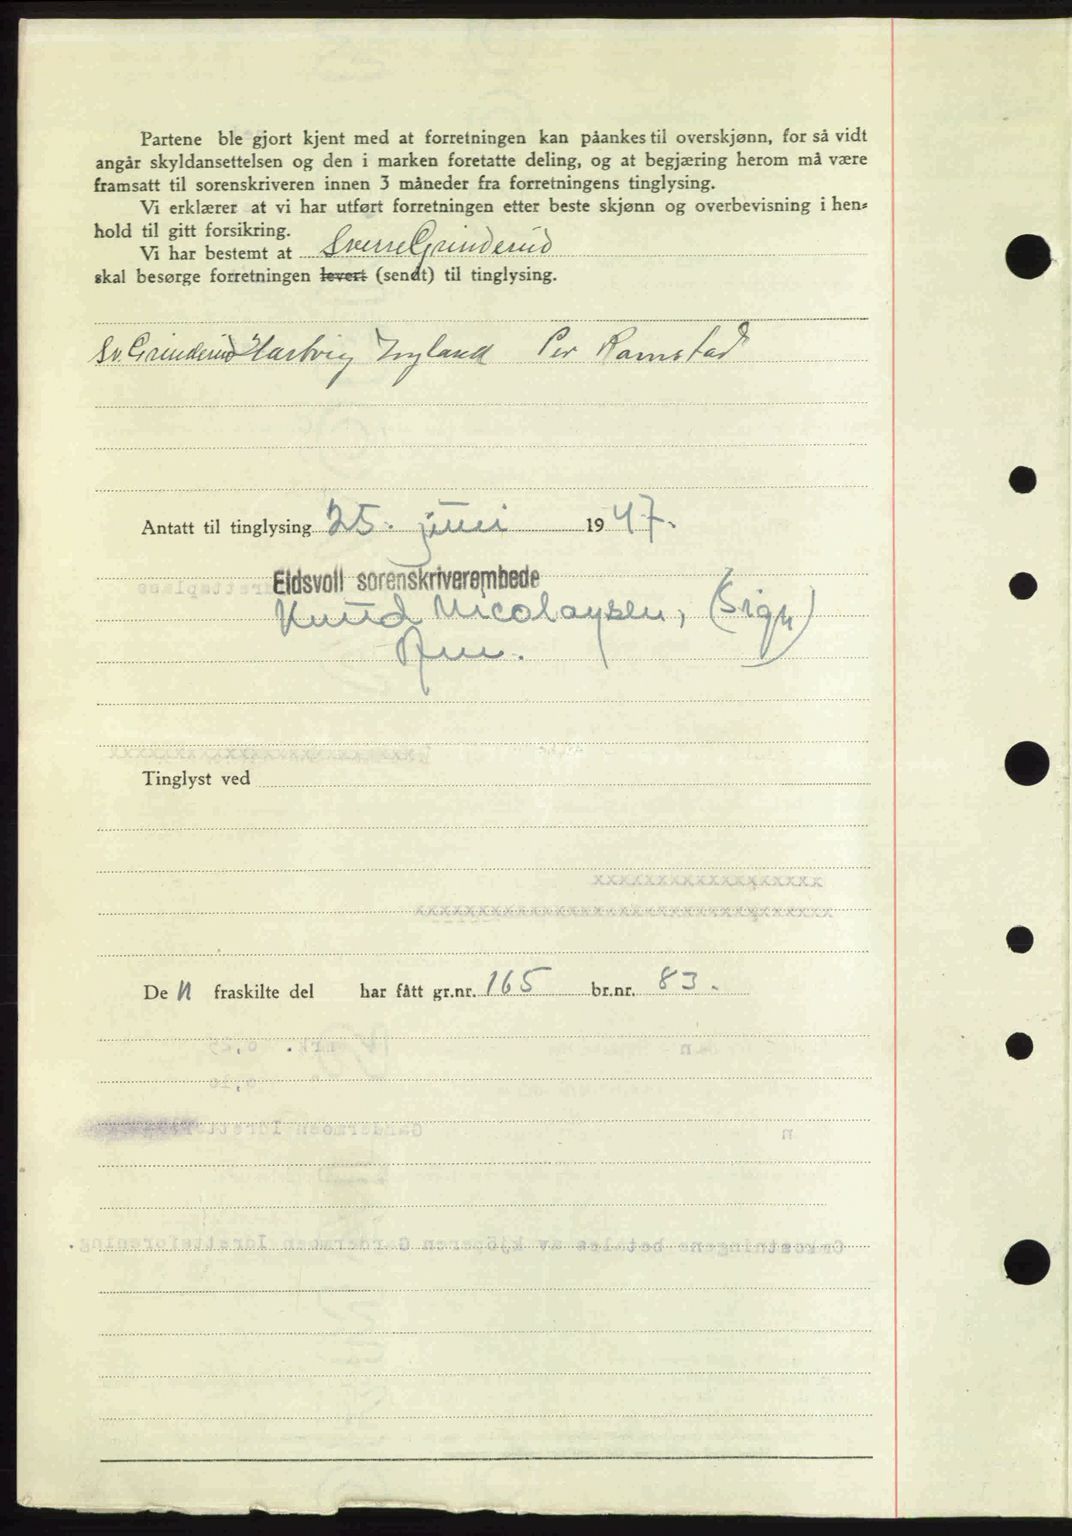 Partene ble gjort kjent med at forretningen kan påankes til overskjønn, for så vidt
angår skyldansettelsen og den i marken foretatte deling, og at begjæring herom må være
framsatt til sorenskriveren innen 3 måneder fra forretningens tinglysing.
Vi erklærer at vi har utført forretningen etter beste skjønn og overbevisning i hen-
hold til gitt forsikring.
Vi har bestemt at Sverre Grinderud
skal besørge forretningen levert (sendt) til tinglysing.
Sv. Grinderud Hartvig Per Ramstad
Antatt til tinglysing 25. juni 1947.
Eidsvoll sorenskriverembede
Knud Nicolaysen, (sign)
Tinglyst ved
xxxxxxxxxxxxxxxxxx
De n fraskilte del har fått gr.nr. 165 br.nr. 83.
n mrk. 0,25
0,10
n Gardermoen Idretts
Omkostningene betales av kjøperen Gardermoen Idrettsforening.